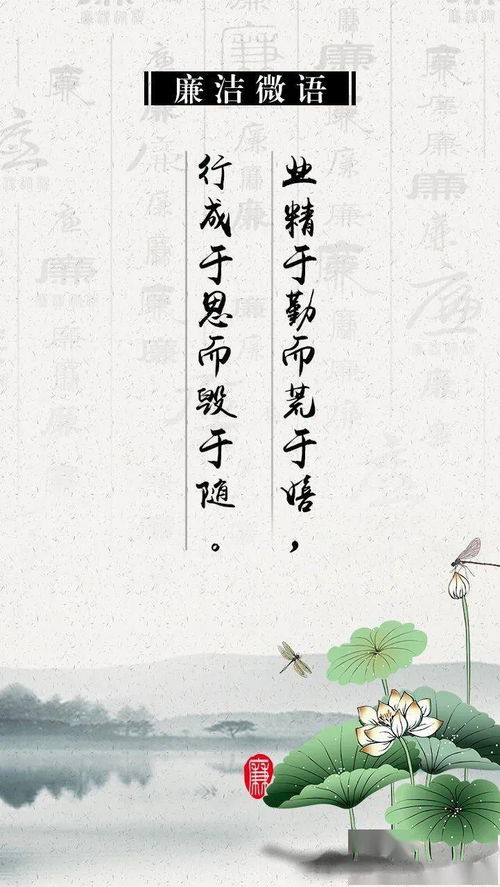 廉洁微语
业精于勤而荒于嬉，
行成于思而毁于随。
廉